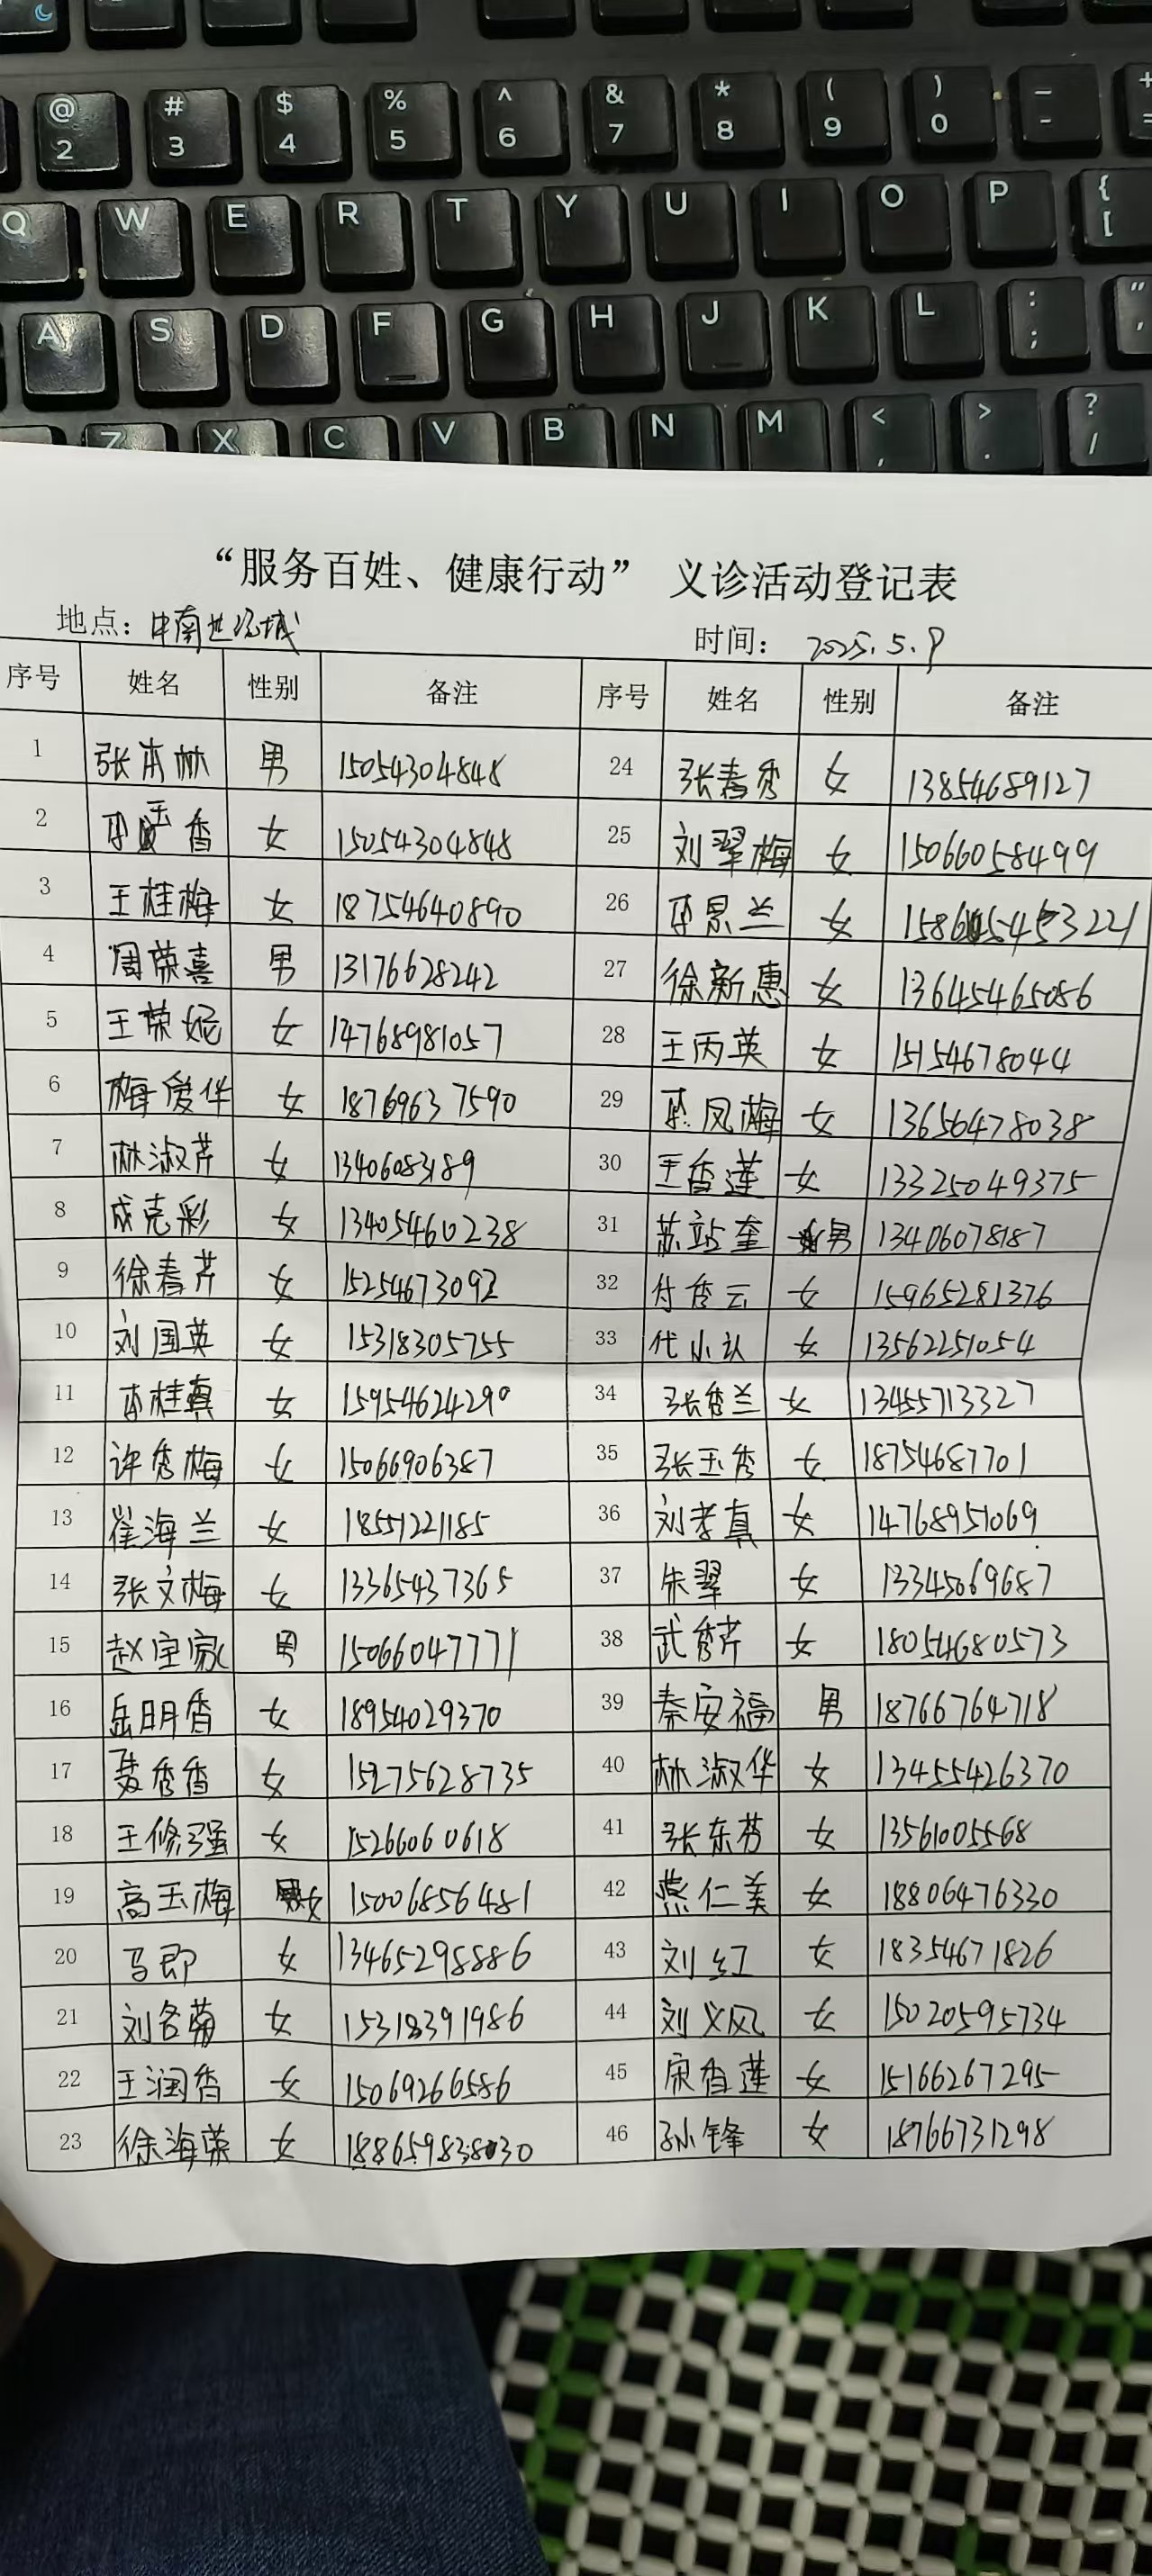 @ 2 # 3 $ 4 % 5 ^ 6 & 7 * 8 ( 9 ) 0 — - + =
Q W E R T Y U I O P { [
A S D F G H J K L : ; " '
Z X C V B N M < , > . ? /
“服务百姓、健康行动” 义诊活动登记表
地点：中南世纪城 时间： 2025.5.9
序号 姓名 性别 备注 序号 姓名 性别 备注
1 张本林 男 15054304848 24 张春秀 女 13854689127
2 李玉香 女 15054304848 25 刘翠梅 女 15066058499
3 王桂梅 女 18754640890 26 李景兰 女
4 周荣喜 男 13176628242 27 徐新惠 女 13645465086
5 王荣妮 女 14768981057 28 王丙英 女 15154678044
6 梅爱华 女 18769637590 29 李凤梅 女 13656478038
7 林淑芹 女 13406083189 30 王香莲 女 13325049375
8 成克彩 女 13405460238 31 苏站奎 男 13406078187
9 徐春芹 女 15254673092 32 付秀云 女 15965281376
10 刘国英 女 15318305755 33 代小 女 13562251054
11 李桂真 女 15954624290 34 张秀兰 女 13455713327
12 许秀梅 女 15066906387 35 张玉秀 女 18754687701
13 崔海兰 女 18551221185 36 刘孝真 女 14768951069
14 张文梅 女 13365437365 37 朱翠 女 13345069687
15 赵宝家 男 15066047771 38 武秀芹 女 18054680573
16 岳明香 女 18954029370 39 秦安福 男 18766764718
17 聂秀香 女 15275628735 40 林淑华 女 13455426370
18 王修强 女 15266060618 41 张东芬 女 13561005568
19 高玉梅 女 15006856481 42 燕仁美 女 18806476330
20 马即 女 13465298886 43 刘红 女 18354671826
21 刘冬菊 女 15318391986 44 刘义风 女 15020595734
22 王润香 女 15069266586 45 宋香莲 女 15166267295
23 徐海荣 女 46 孙锋 女 18766731298